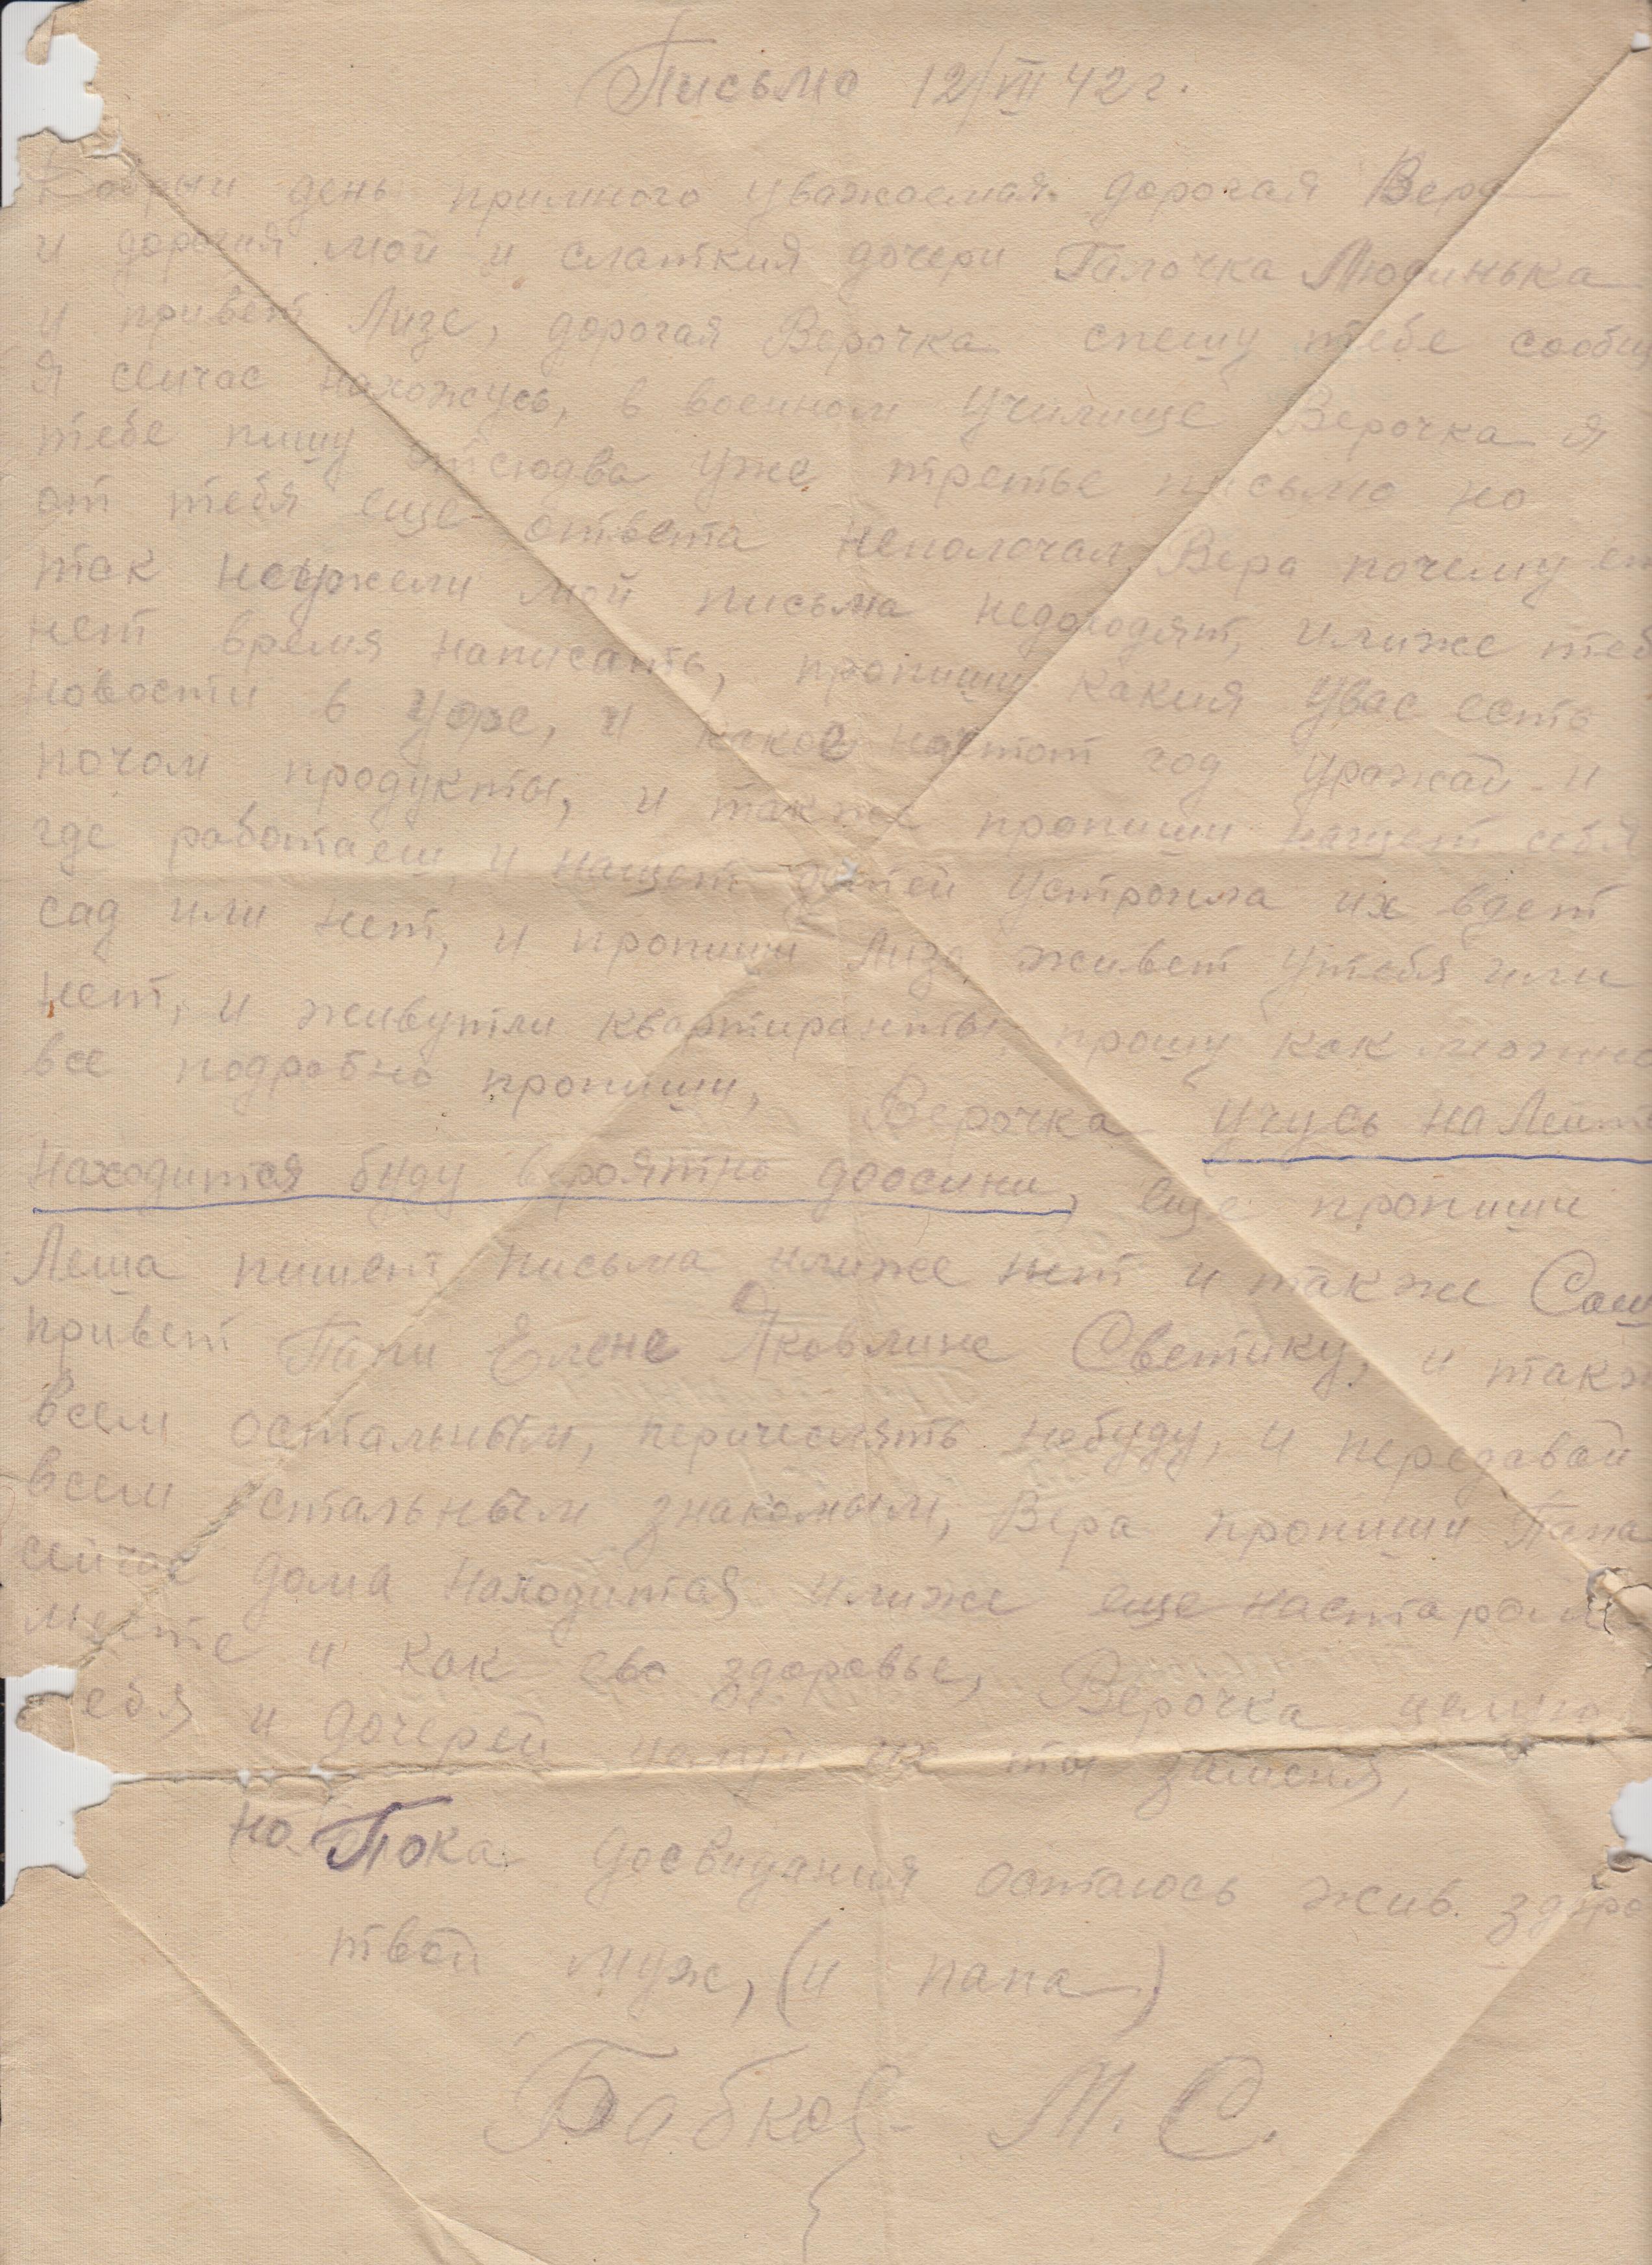 Письмо 12/VII 42 г.
Добрый день примного уважаемая дорогая Вера
и дорогия мои и слаткия дочери Галочка Людинька
и привет Лизе, дорогая Верочка спешу тебе сообщ
Я сейчас нахожусь, в военном училище Верочка я
тебе пишу отсюдва уже третье письмо но
от тебя еще ответа неполочал. Вера почему
так неужели мои письма недоходят, илиже теб
нет время написать, пропиши какия увас есть
новости в и какой наетот год уражай и
почом продукты, и также пропиши нащет себя
где работаеш, и нащет детей устроила их вдет
сад или нет, и пропиши Лиза живет утебя или
нет, и живутли квартиранты, прошу как можно
все подробно пропиши, Верочка учусь на Лейт
находится буду вероятно доосини, еще пропиши
Леша пишет письма илиже нет и также Саш
привет Папи Елене Яковлине Светику, и такж
всем остальным, перичеслять небуду, и передавай
всем остальным знакомым, Вера пропиши Папа
сейчас дома находится илиже еще настаром
месте и как ево здоровье, Верочка целую
тебя и дочерей ты заменя,
но Пока досвидания остаюсь жив. здоро
твой муж, (и папа)
Бабков М. С.